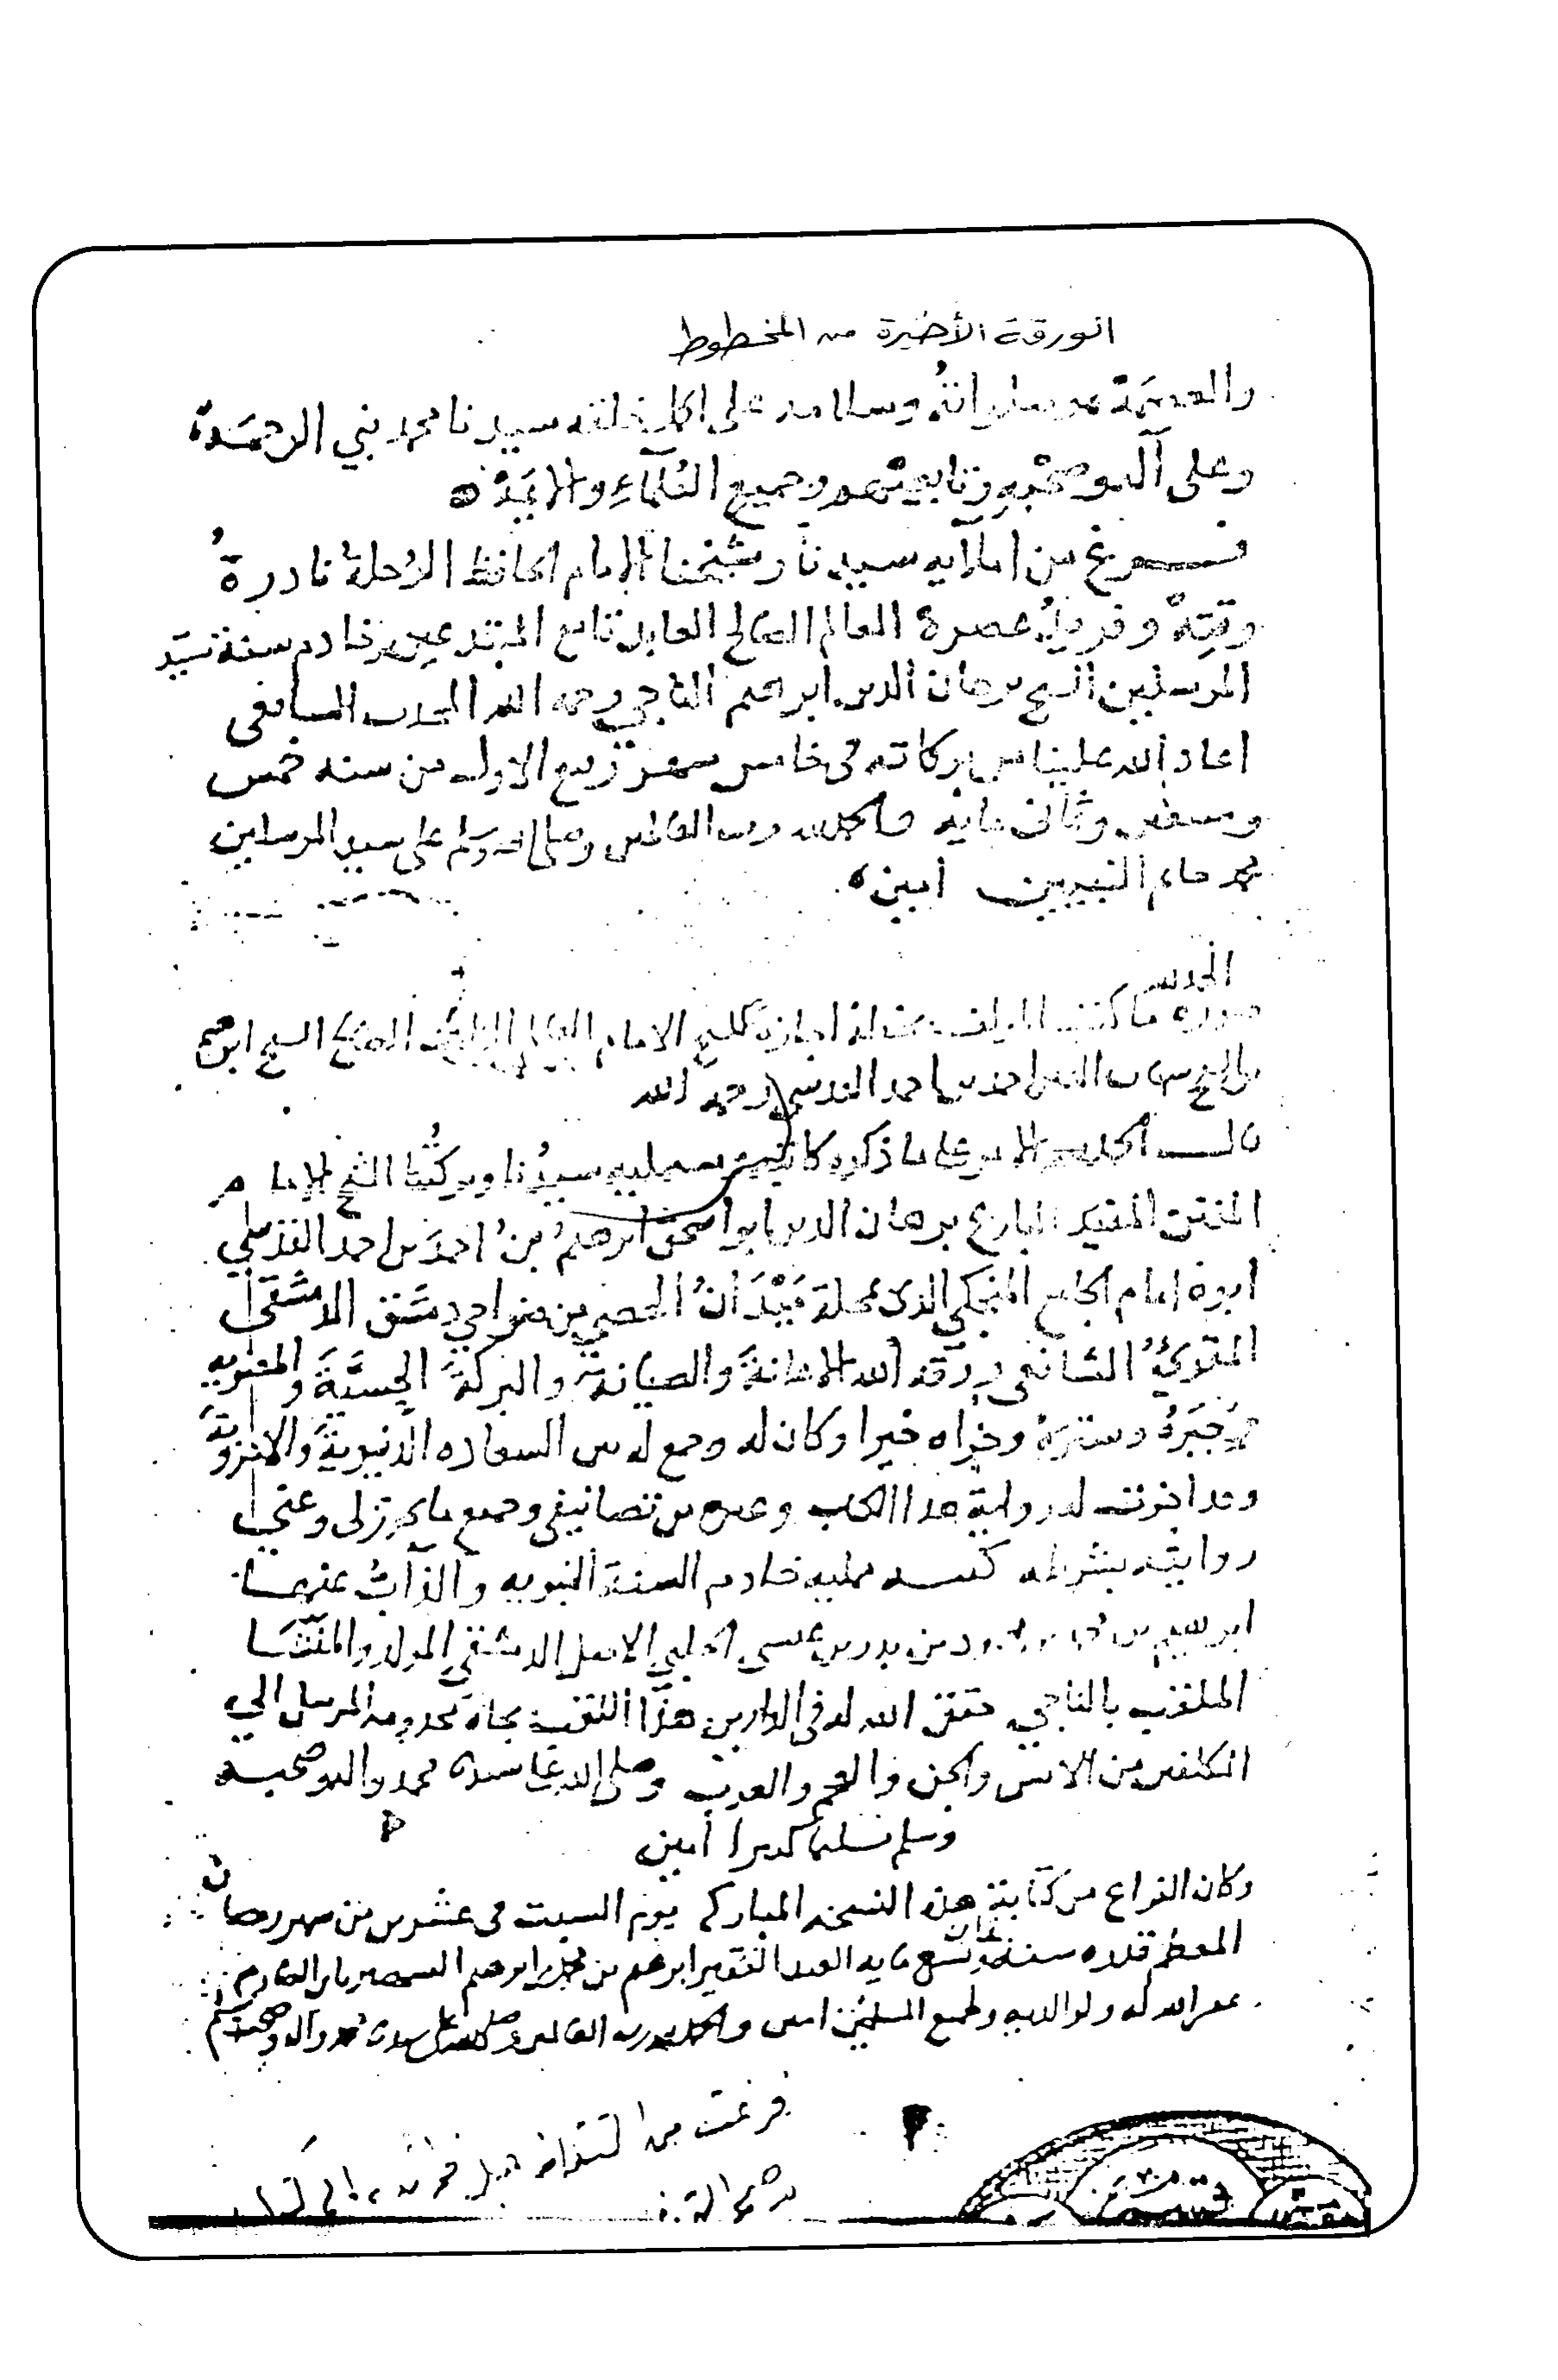 الورقة الأخيرة من المخطوط
وسلامه على اكمل خلقه سيدنا محمد نبي الرحمة
وعلى آله وصحبه وتابعيهم وجميع العلماء والايمة
فرغ من املايه سيدنا وشيخنا الامام الحافظ الرحلة نادرة
وقته وفريد عصره العالم الصالح العابد قامع المبتدعين وخادم سنة سيد
المرسلين الشيخ برهان الدين ابرهيم الناجي رحمه الله المحدث الشافعي
اعاد الله علينا من بركاته في خامس شهر ربيع الاول من سنه خمس
وسبعين وثماني مايه والحمد لله رب العالمين وصلى الله وسلم على سيد المرسلين
محمد خاتم النبيين امين
الحمد لله
صورة ما كتب المولف اجازة للشيخ الامام العالم الصالح الشيخ ابرهيم
بن الشيخ شهاب الدين احمد بن احمد القدسي رحمه الله
قال الحمد لله الامر على ما ذكره كاتبه سيدنا وبركتنا الشيخ الامام
المتقن المفيد البارع برهان الدين ابو اسحق ابرهيم بن احمد بن احمد القدسي
ابوه امام الجامع المنجكي الذي بمحلة ميدان الحصى من ضواحي دمشق الدمشقي
المقرئ الشافعي ورزقه الله الامانة والصيانة والبركة الحسية والمعنوية
وجبره وستره وجزاه خيرا وكان له وجمع له بين السعاده الدنيوية والاخروية
وقد اجزت له رواية هذا الكتاب وغيره من تصانيفي وجميع ما يجوز لي وعني
روايته بشرطه كتبه ممليه خادم السنة النبويه والذاب عنها
ابرهيم بن محمد بن محمود بن بدر بن عيسى الحلبي الاصل الدمشقي المولد والمنشا
الملقب بالناجي حقق الله له في الدارين هذا اللقب بجاه محمد المرسل الى
الثقلين من الانس والجن والعجم والعرب وصلى الله على سيدنا محمد واله وصحبه
وسلم تسليما كثيرا امين
وكان الفراغ من كتابة هذه النسخه المباركه يوم السبت في عشرين من شهر رمضان
المعظم قدره سنة وتسع مايه العبد الفقير ابرهيم بن محمد بن ابرهيم
غفر الله له ولوالديه ولجميع المسلمين امين والحمد لله رب العالمين وصلى الله على سيدنا محمد واله وصحبه وسلم
فرغت من